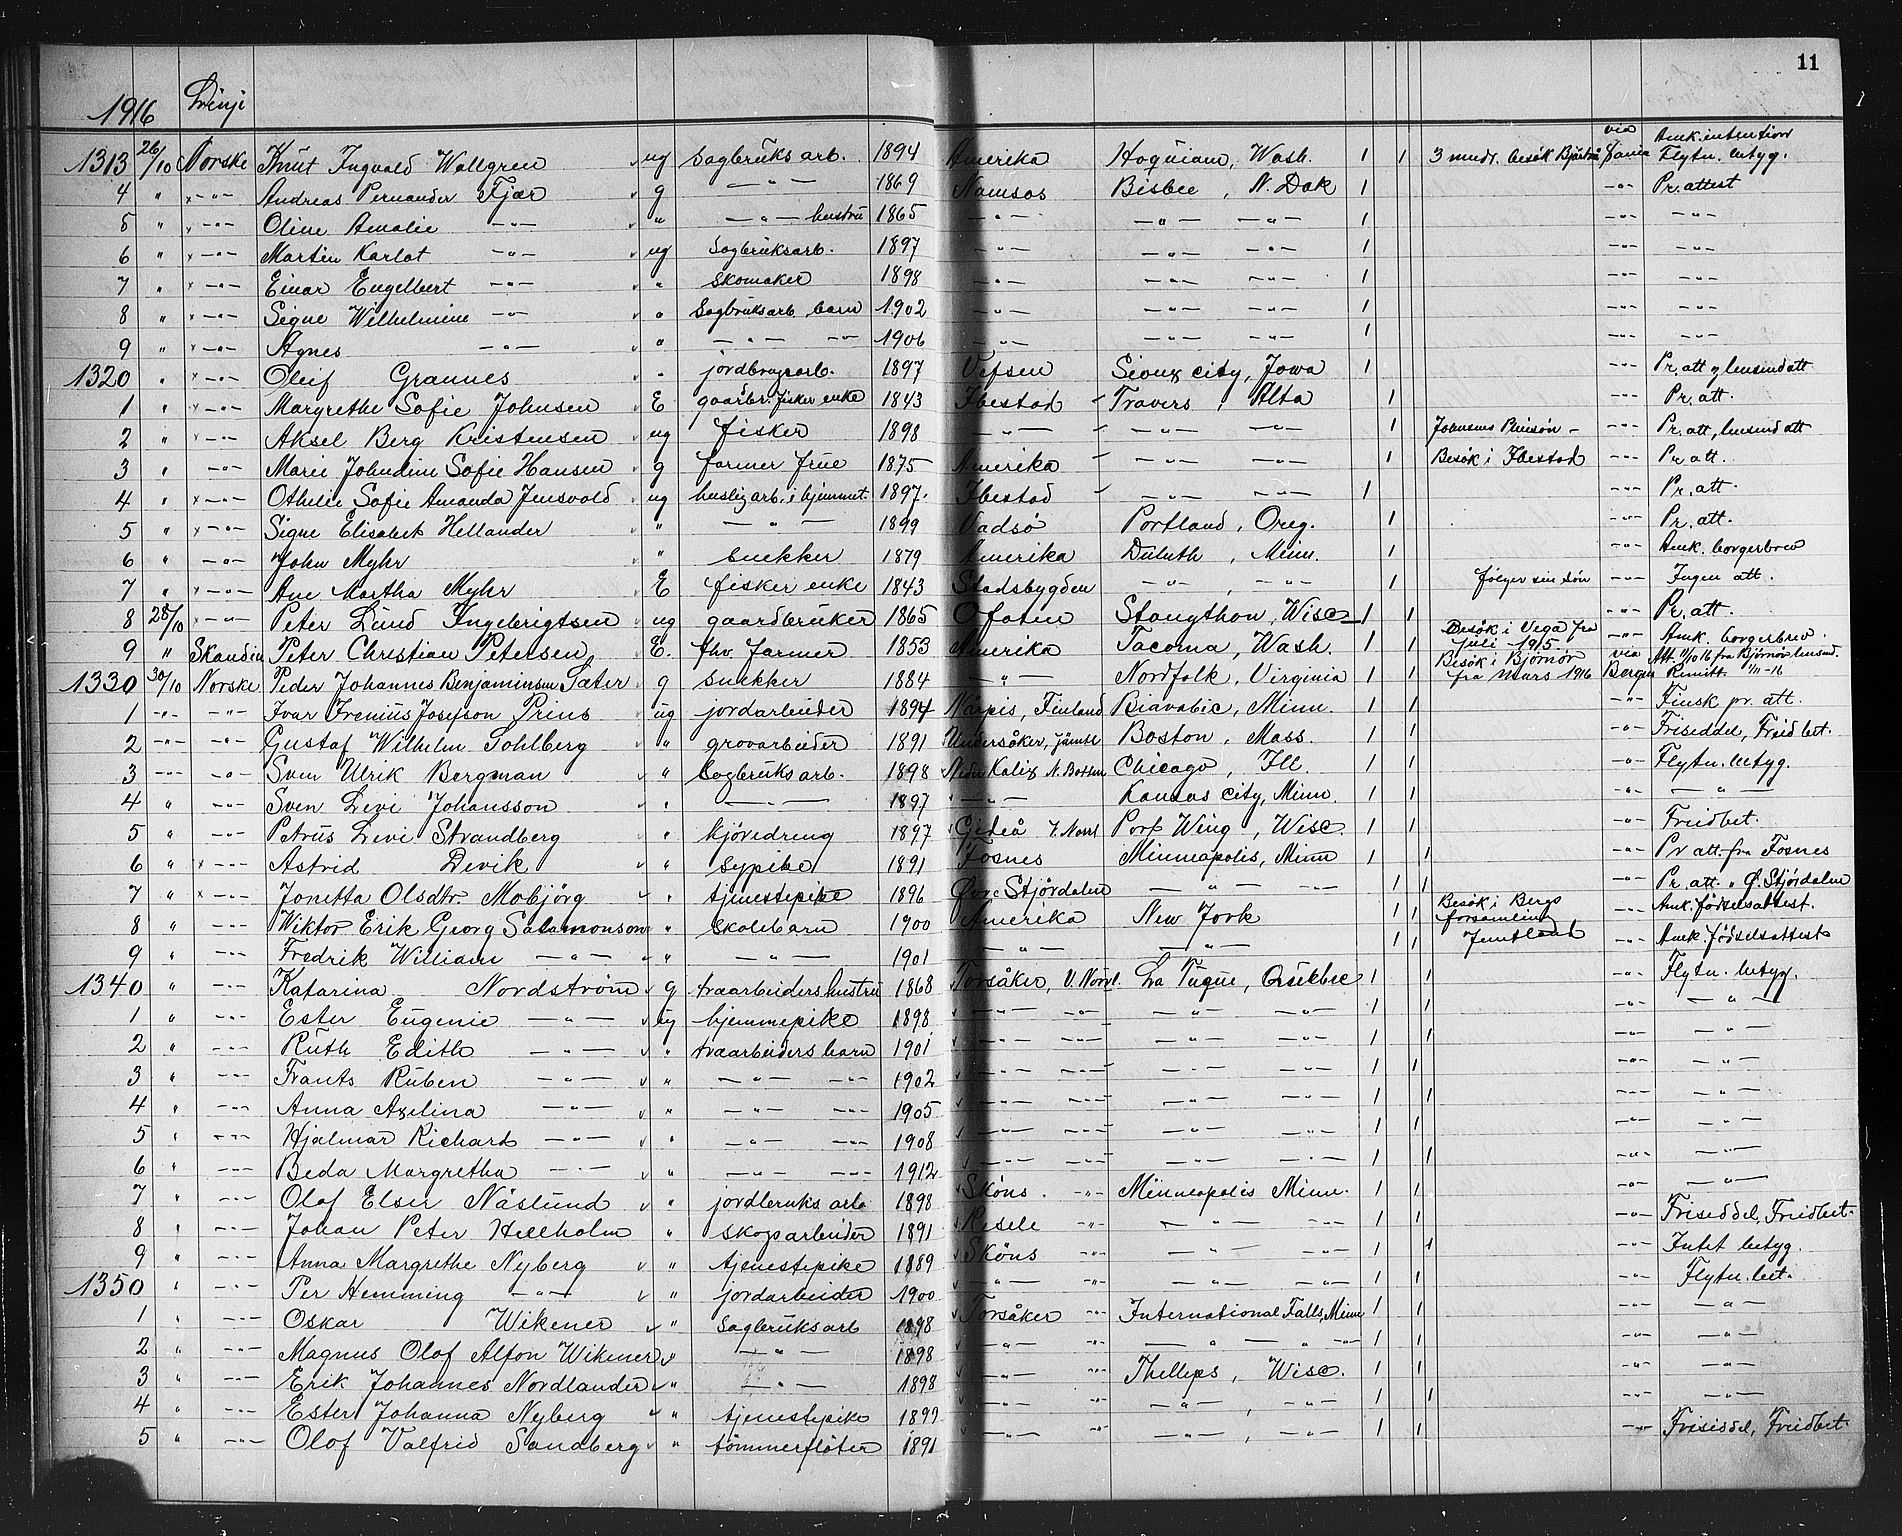 11
1916 Linje
1313 26/10 Norske Knut Ingvald Wallgren ug Sagbruksarb. 1894 Amerika Hoquiam, Wash. 1 1 3 mndr. besök via Amk. intention Flytn. betyg.
4 " x -"- Andreas Fjær g -"- 1869 Namsos Bisbee, N. Dak 1 -"- Pr. attest
5 " x -"- Oline Amalie -"- " -"- hustru 1865 -"- -"- -"- 1 -"- -"-
6 " x -"- Martin Karlot -"- ug Sagbruksarb. 1897 -"- -"- -"- 1 -"- -"-
7 " x -"- Einar Engelbert -"- " Skomaker 1898 -"- -"- -"- 1 -"- -"-
8 " x -"- Signe Wilhelmine -"- " Sagbruksarb. barn 1902 -"- -"- -"- 1 -"- -"-
9 " x -"- Agnes -"- " -"- -"- 1906 -"- -"- -"- 1 -"- -"-
1320 " x -"- Oleif Grannes " jordbrugsarb. 1897 Vefsen Sioux city, Iowa 1 -"- Pr. att og lensmd att
1 " x -"- Margrethe Sofie Johnsen E gaardbr. fisker enke 1843 Ibestad Travers, Alta 1 -"- Pr. att.
2 " x -"- Aksel Berg Kristensen ug fisker 1898 -"- -"- -"- 1 Johnsens -"- Pr. att, lensmd att
3 " -"- Marie Johndine Sofie Hansen g farmer frue 1875 Amerika -"- -"- 1 Besök i Ibestad -"- Pr. att.
4 " x -"- Othelie Sofie Amanda Jensvold ug huslig arb. i hjemmet 1897. Ibestad -"- -"- 1 -"- Pr. att.
5 " x -"- Signe Elisabet Hellander " -"- 1899 Vadsö Portland, Oreg. 1 -"- Pr. att.
6 " -"- John Myhr " Snekker 1879 Amerika Duluth, Minn. 1 -"- Amk. borgerbrev
7 " x -"- Ane Martha Myhr E fisker enke 1843 Stadsbygden -"- -"- 1 følger sin sön -"- Ingen att.
8 28/10 x -"- Peter Lund Ingebrigtsen ug gaardbruker 1865 Ofoten Stoughton, Wisc 1 1 -"- Pr. att.
9 " Skandin Peter Christian Petersen E. fhv. farmer 1853 Amerika Tacoma, Wash. 1 1 Besök i Vega fra juli 1915 -"- Amk. borgerbrev.
1330 30/10 Norske Peder Johannes Benjaminsen Sæter g Snekker 1884 -"- Nordfolk, Virginia 1 1 Besök i Bjørnør fra mars 1916 via Bergen Att. 9/10 16 fra Bjørnør lensmd. Remitt. 1/11-16
1 -"- -"- Ivar Frenius Josefson Prins ug jordarbeider 1894 Närpis, Finland Biavabic, Minn. 1 1 -"- Finsk pr. att.
2 -"- -"- Gustaf Wilhelm Sohlberg " grovarbeider 1891 Undersåker, Jämtl Boston, Mass. 1 1 -"- Friseddel, Fridbet.
3 -"- -"- Sven Ulrik Bergman " Sagbruksarb. 1898 Neder Kalix N. Botten Chicago, Ill. 1 1 -"- Flytn. betyg.
4 " -"- Sven Levi Johansson " -"- 1897 -"- Kansas city, Minn. 1 1 -"- -"-
5 " -"- Petrus Levi Strandberg " kjöredreng 1897 Gideå V. Norrl Port Wing, Wisc 1 1 -"- Friedbet.
6 " x -"- Astrid Devik " Sypike 1891 Fosnes Minneapolis, Minn 1 1 -"- Pr att. fra Fosnes
7 " x -"- Jonetta Olsdtr. Mobjörg " tjenestepike 1896 Øvre Stjördalen -"- -"- 1 1 -"- Pr. att. " Ø. Stjördalen
8 " -"- Wiktor Erik Georg Salamonson " Skolebarn 1900 Amerika New York 1 1 Besök i Bergs forsamling -"- Amk. födselsattest.
9 " -"- Fredrik William -"- " -"- 1901 -"- -"- 1 1 Jemtland -"- Amk. födselsattest
1340 " -"- Katarina Nordström g traarbeiders hustru 1868 Torsåker, V. Norrl. La Tuque, Quebec 1 1 -"- Flytn. betyg.
1 " -"- Ester Eugenie -"- ug hjemmepike 1898 -"- -"- -"- -"- 1 1 -"- -"-
2 " -"- Ruth Edith -"- " traarbeiders barn 1901 -"- -"- -"- -"- 1 1 -"- -"-
3 " -"- Frants Ruben -"- " -"- -"- 1902 -"- -"- -"- -"- 1 1 -"- -"-
4 " -"- Anna Axelina -"- " -"- -"- 1905 -"- -"- -"- -"- 1 1 -"- -"-
5 " -"- Hjalmar Richard -"- " -"- -"- 1908 -"- -"- -"- -"- 1 1 -"- -"-
6 " -"- Beda Margretha -"- " -"- -"- 1912 -"- -"- -"- -"- 1 1 -"- -"-
7 " -"- Olof Elser Näslund " jordbruks arb 1898 Sköns. -"- Minneapolis Minn. 1 1 -"- -"-
8 " -"- Johan Peter Hellholm " skogsarbeider 1891 Resele -"- -"- -"- 1 1 -"- Friseddel, Friedbet.
9 " -"- Anna Margrethe Nyberg " tjenestepike 1889 Sköns -"- -"- -"- 1 1 -"- Intet betyg.
1350 " -"- Per Hemming -"- " jordarbeider 1900 -"- -"- -"- -"- 1 1 -"- Flytn. bet.
1 " -"- Oskar Wikener " Sagbruksarb 1898 Torsåker -"- International Falls, Minn 1 1 -"- -"-
2 " -"- Magnus Olof Alfon Wikener " -"- 1898 -"- -"- -"- -"- 1 1 -"- -"-
3 " -"- Erik Johannes Nordlander " -"- 1898 -"- -"- Phelleps, Wisc. 1 1 -"- -"-
4 " -"- Ester Johanna Nyberg " tjenestepike 1899 -"- -"- -"-, -"- 1 1 -"- -"-
5 " -"- Olof Valfrid Sandberg " tömmerflöter 1891 -"- -"- -"-, -"- 1 1 -"- Friseddel, Friedbet.